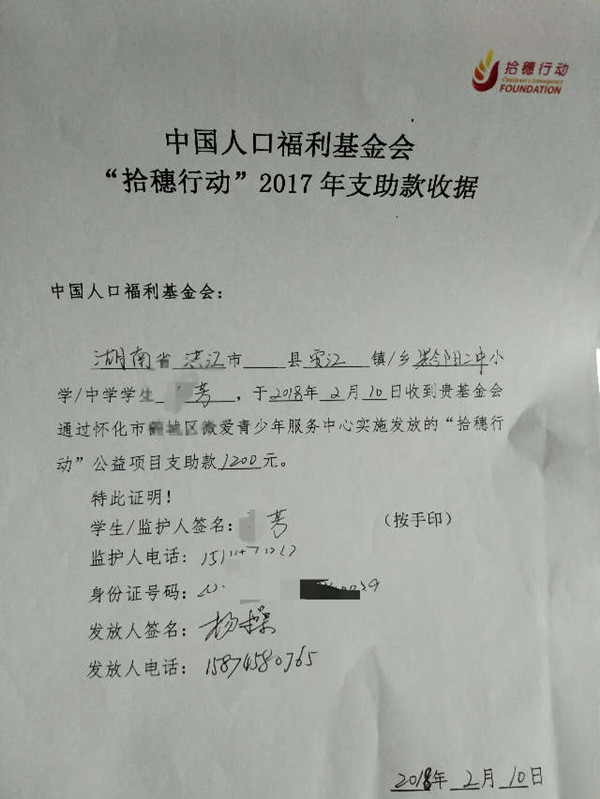 拾穗行动
Children's Emergency
FOUNDATION
中国人口福利基金会
“拾穗行动”2017年支助款收据
中国人口福利基金会：
湖南省洪江市 县安江镇/乡黔阳二中小
学/中学学生 芳，于2018年2月10日收到贵基金会
通过怀化市 城区微爱青少年服务中心实施发放的“拾穗行
动”公益项目支助款1200元。
特此证明！
学生/监护人签名： 芳 （按手印）
监护人电话：
身份证号码：
发放人签名：杨
发放人电话：15874580765
2018年2月10日